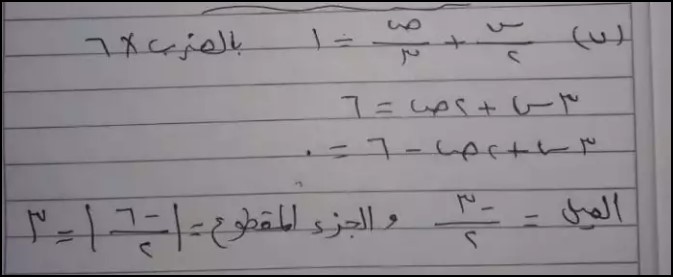 (ب) س/٢ + ص/٣ = ١ بالضرب × ٦
٣س + ٢ص = ٦
٣س + ٢ص - ٦ = ٠
الميل = -٣/٢ و الجزء المقطوع = |-٦/٢| = ٣